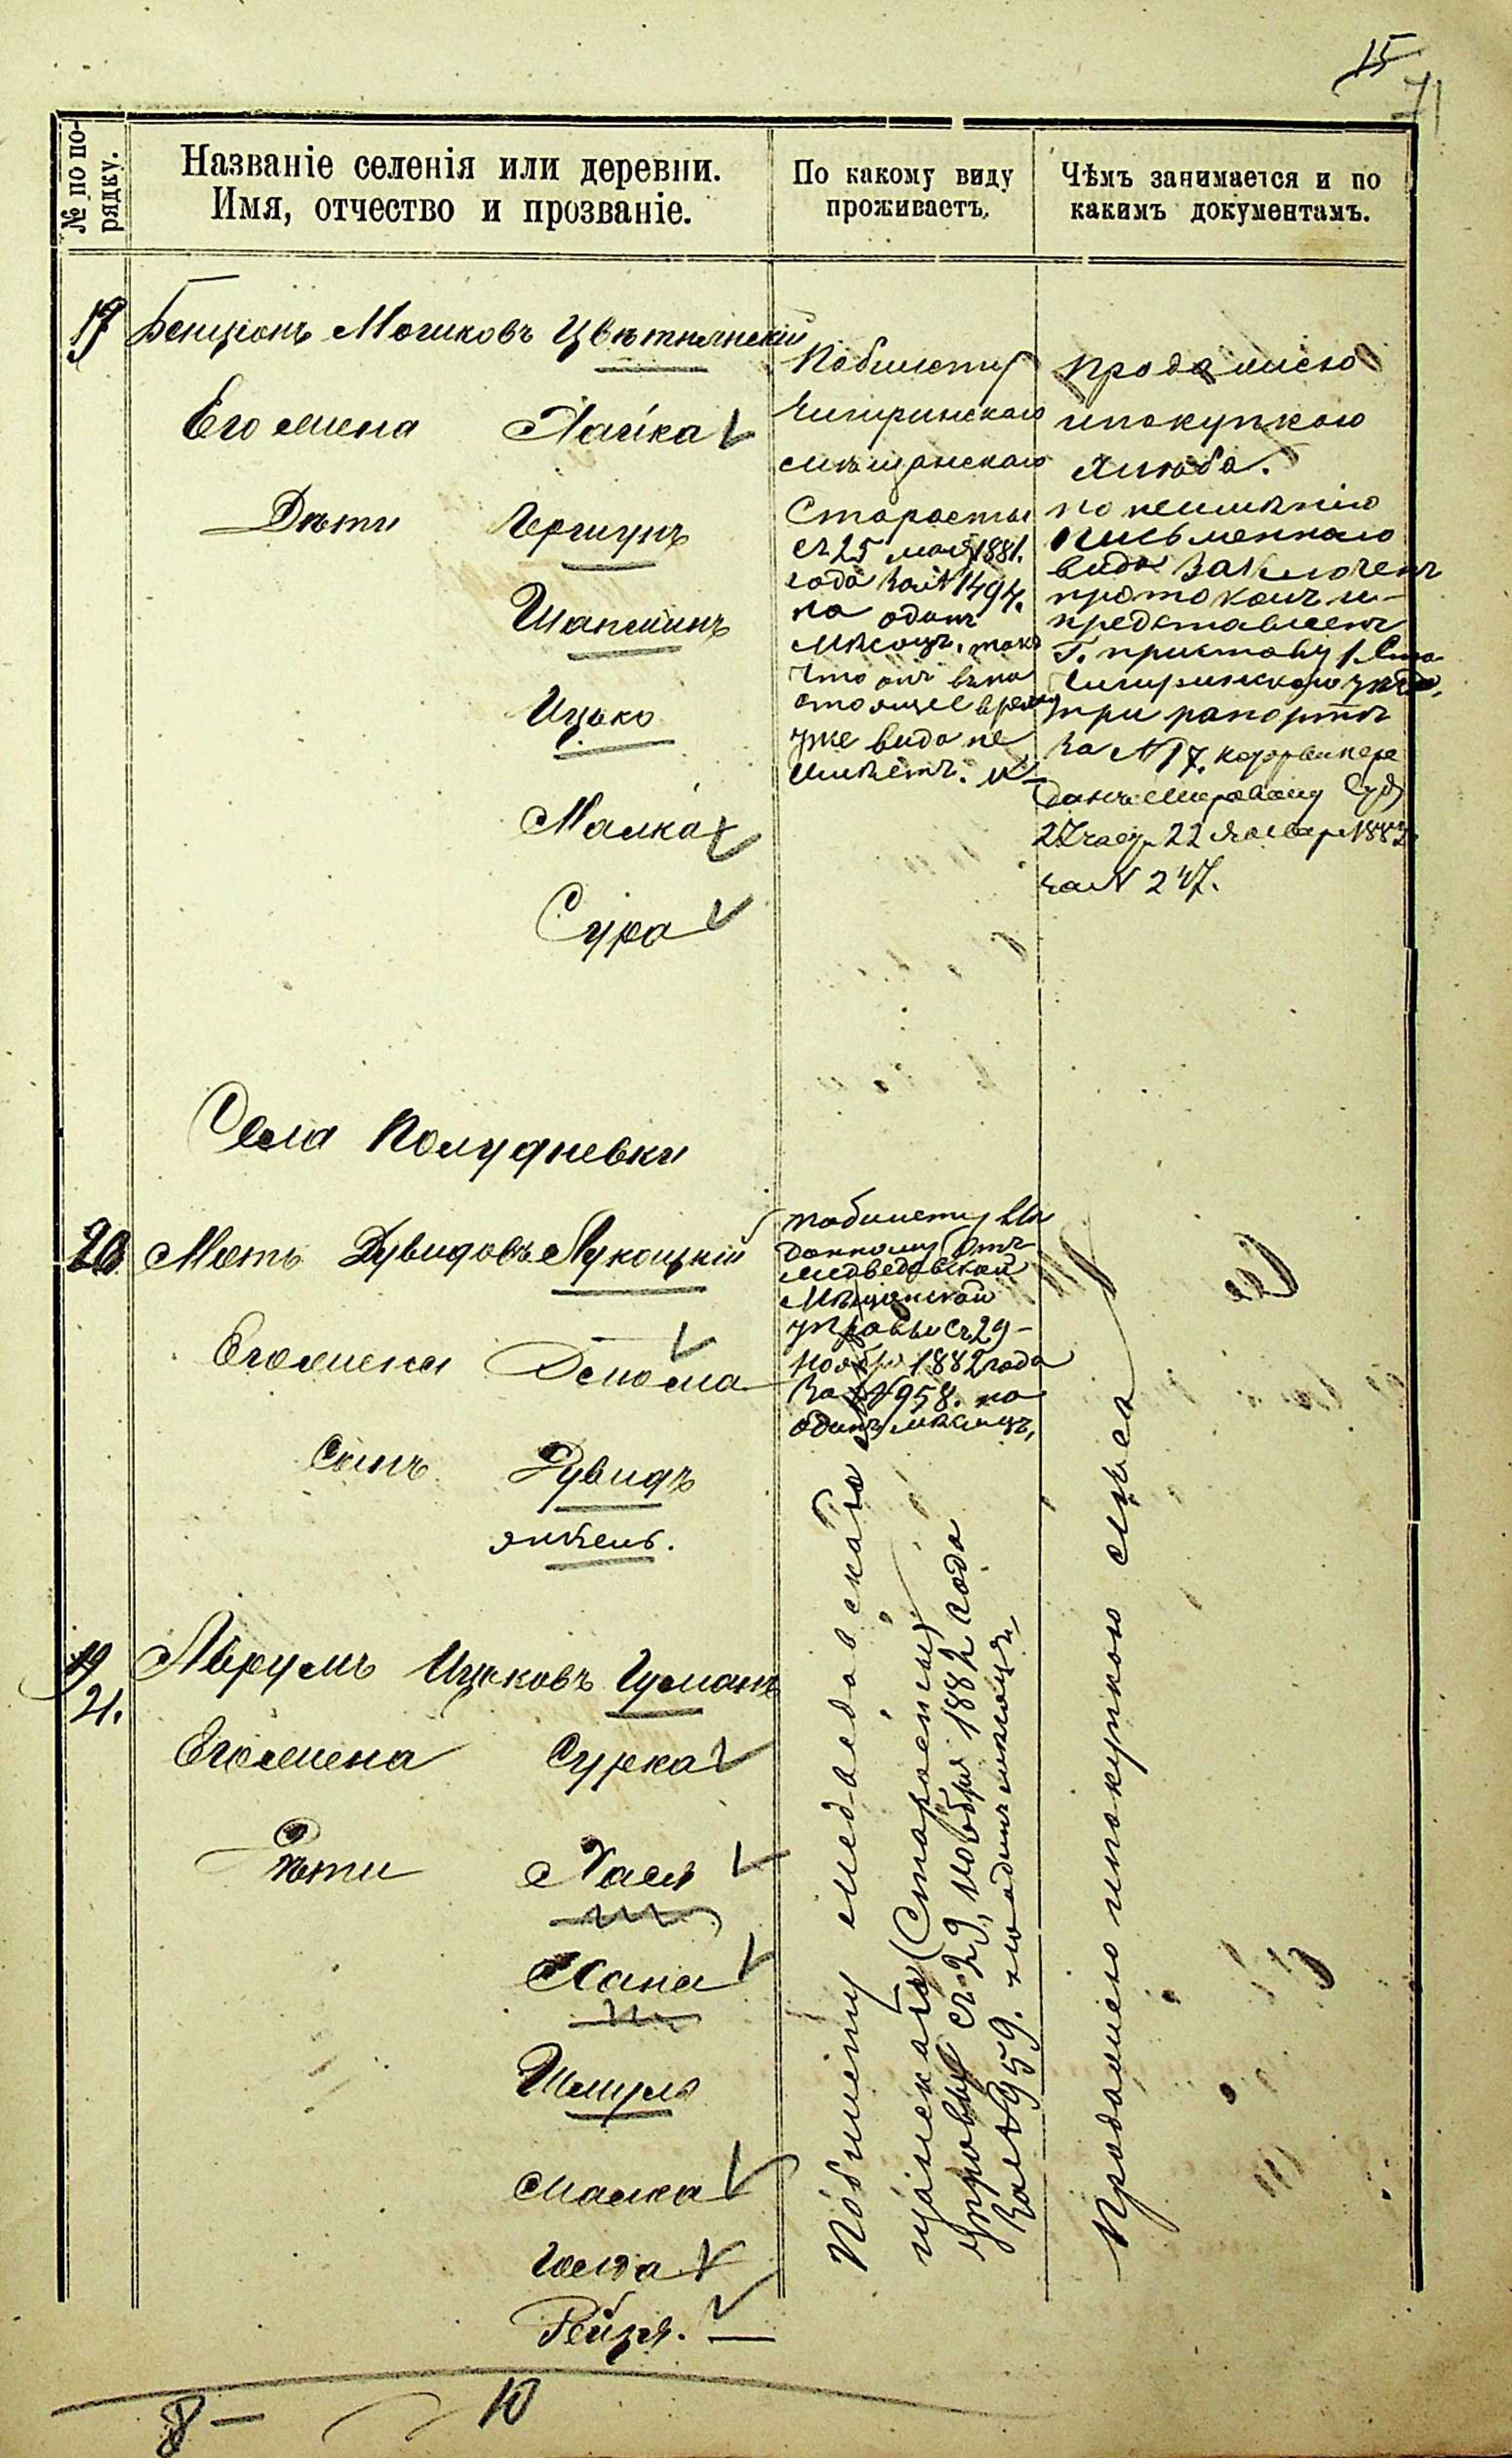 15
71
№ по по-
рядку.
Названіе селенія или деревни.
Имя, отчество и прозваніе.
По какому виду
проживаетъ.
Чѣмъ занимается и по
какимъ документамъ.
19
Бенціонъ Мошковъ Цвѣтнянскій
Его жена Хайка
Дѣти Гершунъ
Шапсинъ
Ицько
Малка
Сура
По билету
Чигиринскаго
мѣщанскаго
Старосты
съ 25 мая 1881.
года за № 1494.
на одинъ
мѣсяцъ. такъ
что онъ въ на
стоящее время
уже вида не
имѣетъ. и
продажею
и покупкою
хлѣба.
по неимѣнію
письменнаго
вида заключенъ
протоколъ и
представленъ
Г. приставу 1 Ста
Чигиринскаго уѣзда,
при рапортѣ
за № 17.
данъ Мировому Суд
2 Участ. 22 Января 1883
за № 247.
Села Полудневки
20
Моть Дувидовъ Лукоцкій
Его жена
Сынъ Дувидъ
Янкель.
по билету вы
данному отъ
медведовской
Мѣщанской
управы съ 29
ноября 1882 года
за № 958. на
одинъ мѣсяцъ,
19
21.
Аврумъ Ицковъ Гуманъ
Его жена Сурка
Дѣти Хася
Хана
Шмуль
Малка
Голда
Рейзя.
По билету медведовскаго мѣ
щанскаго (Старосты)
управы съ 29, ноября 1882 года
за № 959. на одинъ мѣсяцъ,
Продажею и покупкою мѣса
8 — 10